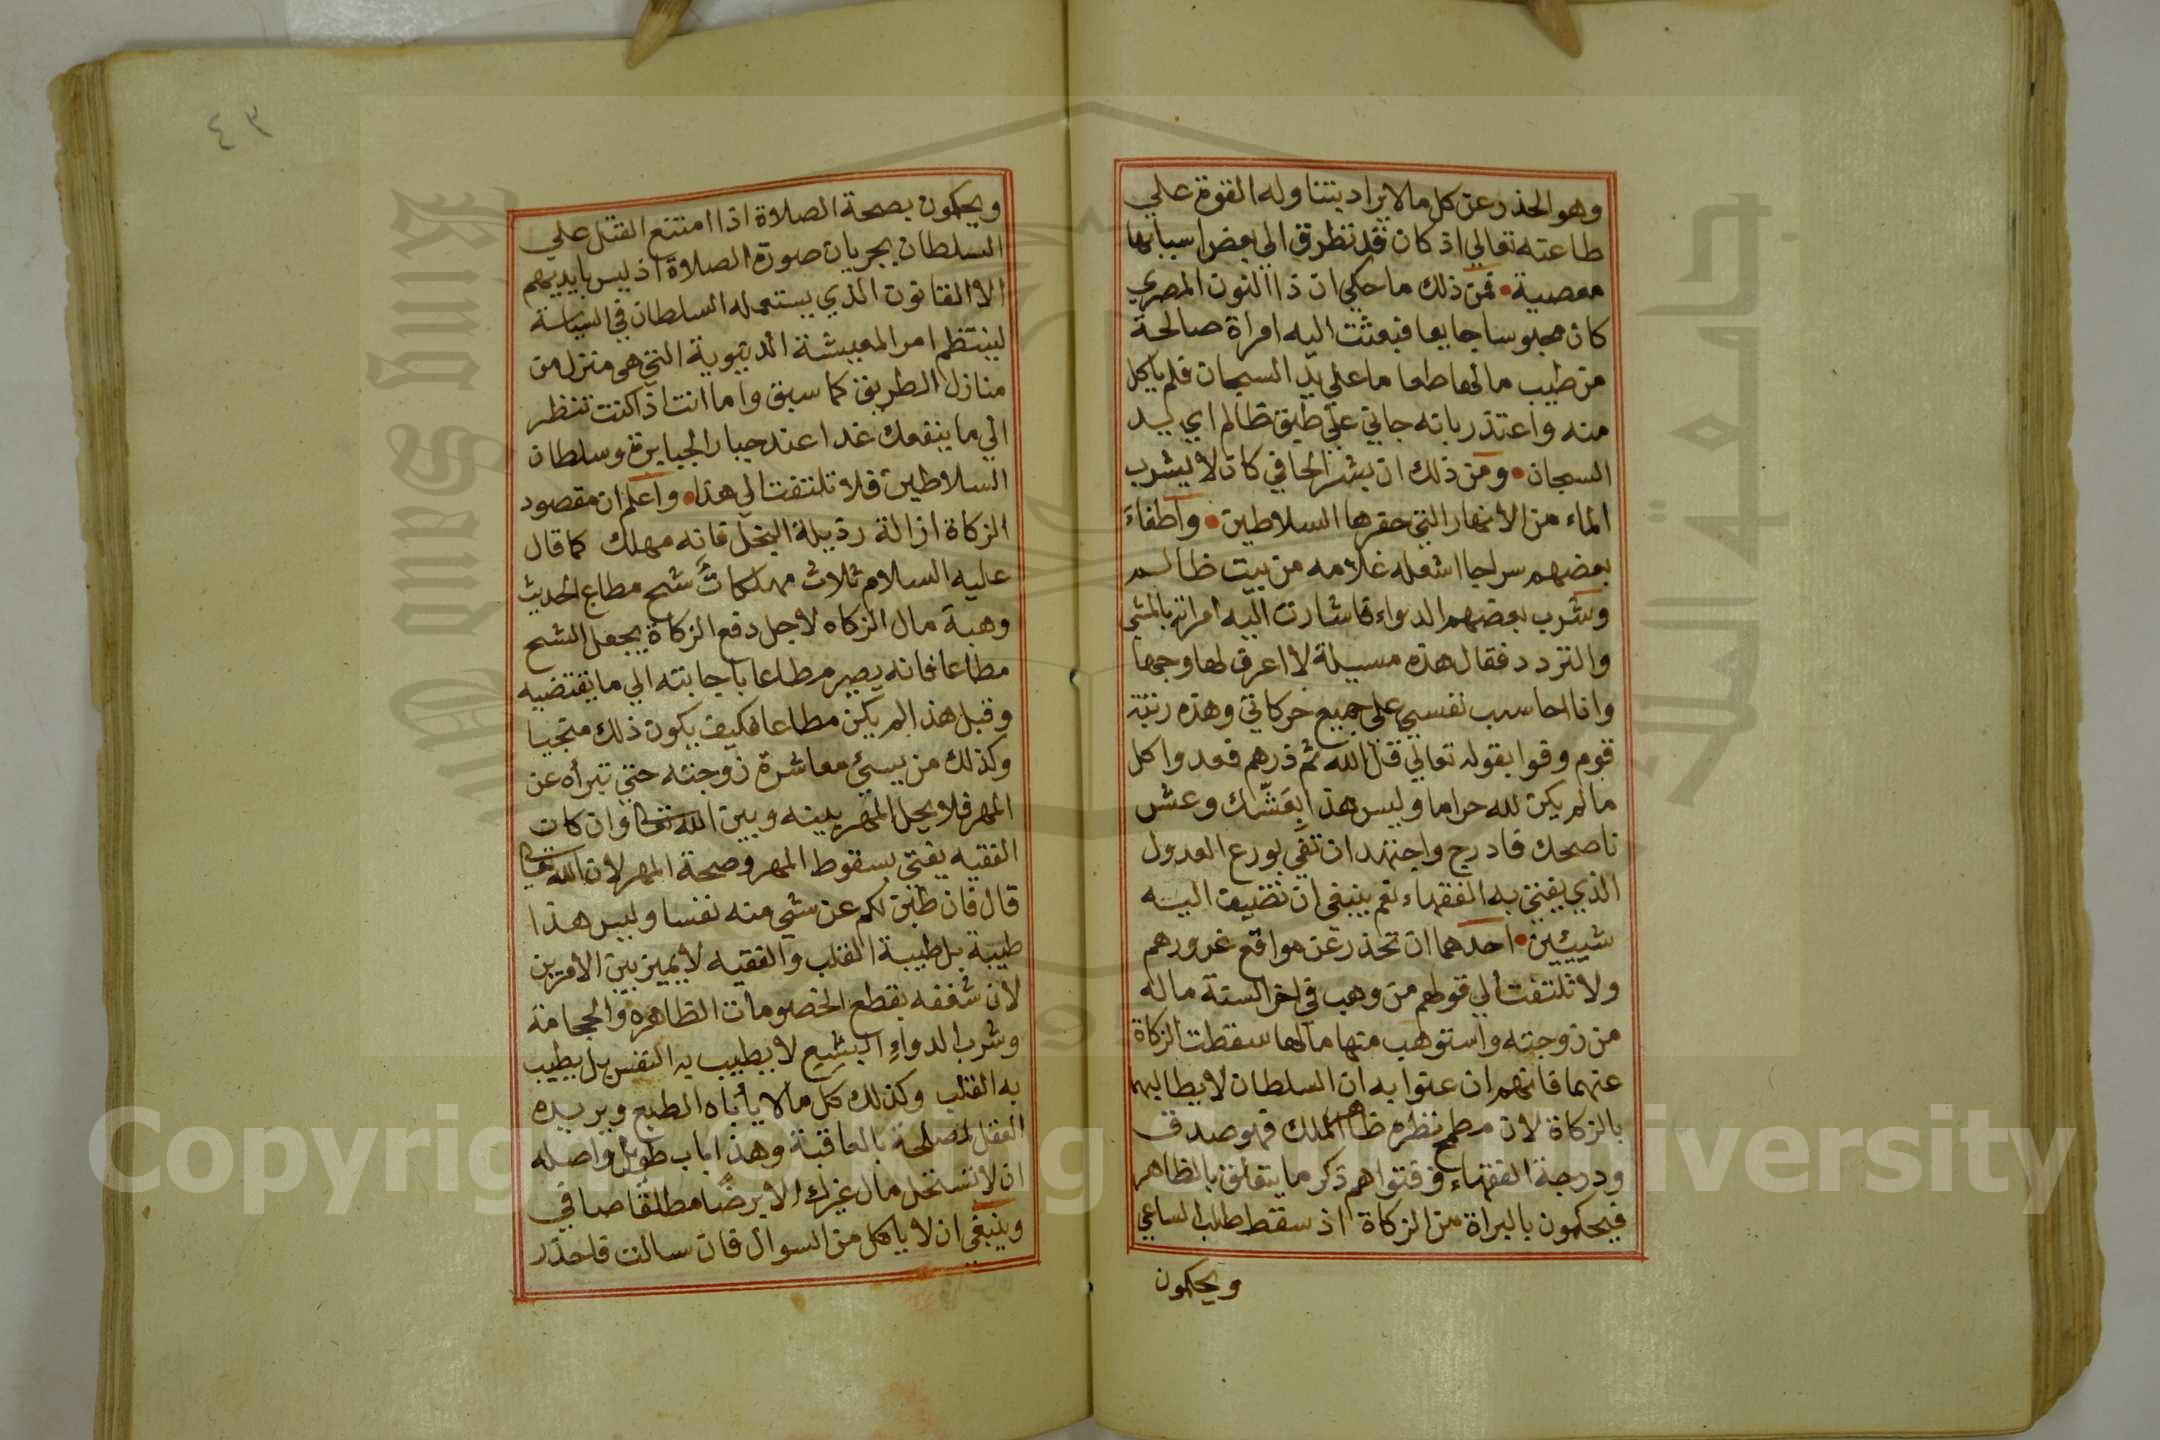 وهو الحذر عن كل ما لا يراد بتناوله القوة علي
طاعته تعالي اذ كان قد تطرق الي بعض اسبابها
معصية • فمن ذلك ما حكي ان ذا النون المصري
كان محبوسا جايعا فبعثت اليه امراة صالحة
من طيب مالها طعاما علي يد السجان فلم ياكل
منه واعتذر بانه جاني علي طبق ظالم اي يد
السجان • ومن ذلك ان بشر الحافي كان لا يشرب
الماء من الانهار التي حفرها السلاطين • واطفاء
بعضهم سراجا اشعله غلامه من بيت ظالم
وشرب بعضهم الدواء فاشارت اليه امراته بالمشي
والتردد فقال هذه مسيلة لا اعرف لها وجها
وانا احاسب نفسي علي جميع حركاتي وهذه رتبة
قوم وفوا بقوله تعالي قل الله ثم ذرهم فعدوا كل
ما لم يكن لله حراما وليس هذا بعشك وعش
ناصحك فادرج واجتهد ان تفي بورع العدول
الذي يفتي به الفقهاء نعم ينبغي ان تضيف اليه
شييين • احدهما ان تحذر عن مواقع غرورهم
ولا تلتفت الي قولهم من وهب في اخر السنة ماله
من زوجته واستوهب منها مالها سقطت الزكاة
عنهما فانهم ان عنوا به ان السلطان لا يطالبهما
بالزكاة لان مطمح نظره ظاهر الملك فهو صدق
ودرجة الفقهاء وفتواهم ذكر ما يتعلق بالظاهر
فيحكمون بالبراة من الزكاة اذ سقط طلب الساعي
ويحكمون
٤٣
ويحكمون بصحة الصلاة اذا امتنع القتل علي
السلطان بجريان صورة الصلاة اذ ليس بايديهم
الا القانون الذي يستعمله السلطان في السياسة
لينتظم امر المعيشة الدنيوية التي هي منزل من
منازل الطريق كما سبق واما انت اذا كنت تنظر
الي ما ينفعك غدا عند جبار الجبابرة وسلطان
السلاطين فلا تلتفت الي هذا • واعلم ان مقصود
الزكاة ازالة رذيلة البخل فانه مهلك كما قال
عليه السلام ثلاث مهلكات شح مطاع الحديث
وهبة مال الزكاه لاجل دفع الزكاة يجعل الشح
مطاعا فانه يصير مطاعا باجابته الي ما يقتضيه
وقبل هذا لم يكن مطاعا فكيف يكون ذلك منجيا
وكذلك من يسيئ معاشرة زوجته حتي تبرأه عن
المهر فلا يحل المهر بينه وبين الله تعالي وان كان
الفقيه يفتي بسقوط المهر وصحة المهر لان الله تعالي
قال فان طبن لكم عن شي منه نفسا وليس هذا
طيبة بل طيبة القلب والفقيه لا يميز بين الامرين
لان شغفه بقطع الخصومات الظاهره والحجامة
وشرب الدواء البشيع لا يطيب به النفس بل يطيب
به القلب وكذلك كل ما لا يأباه الطبع ويريده
العقل لمصلحة بالعاقبة وهذا باب طويل واصله
ان لا تستحل مال غيرك الا برضا مطلقا صافي
وينبغي ان لا ياكل من السوال فان سالت فاحذر